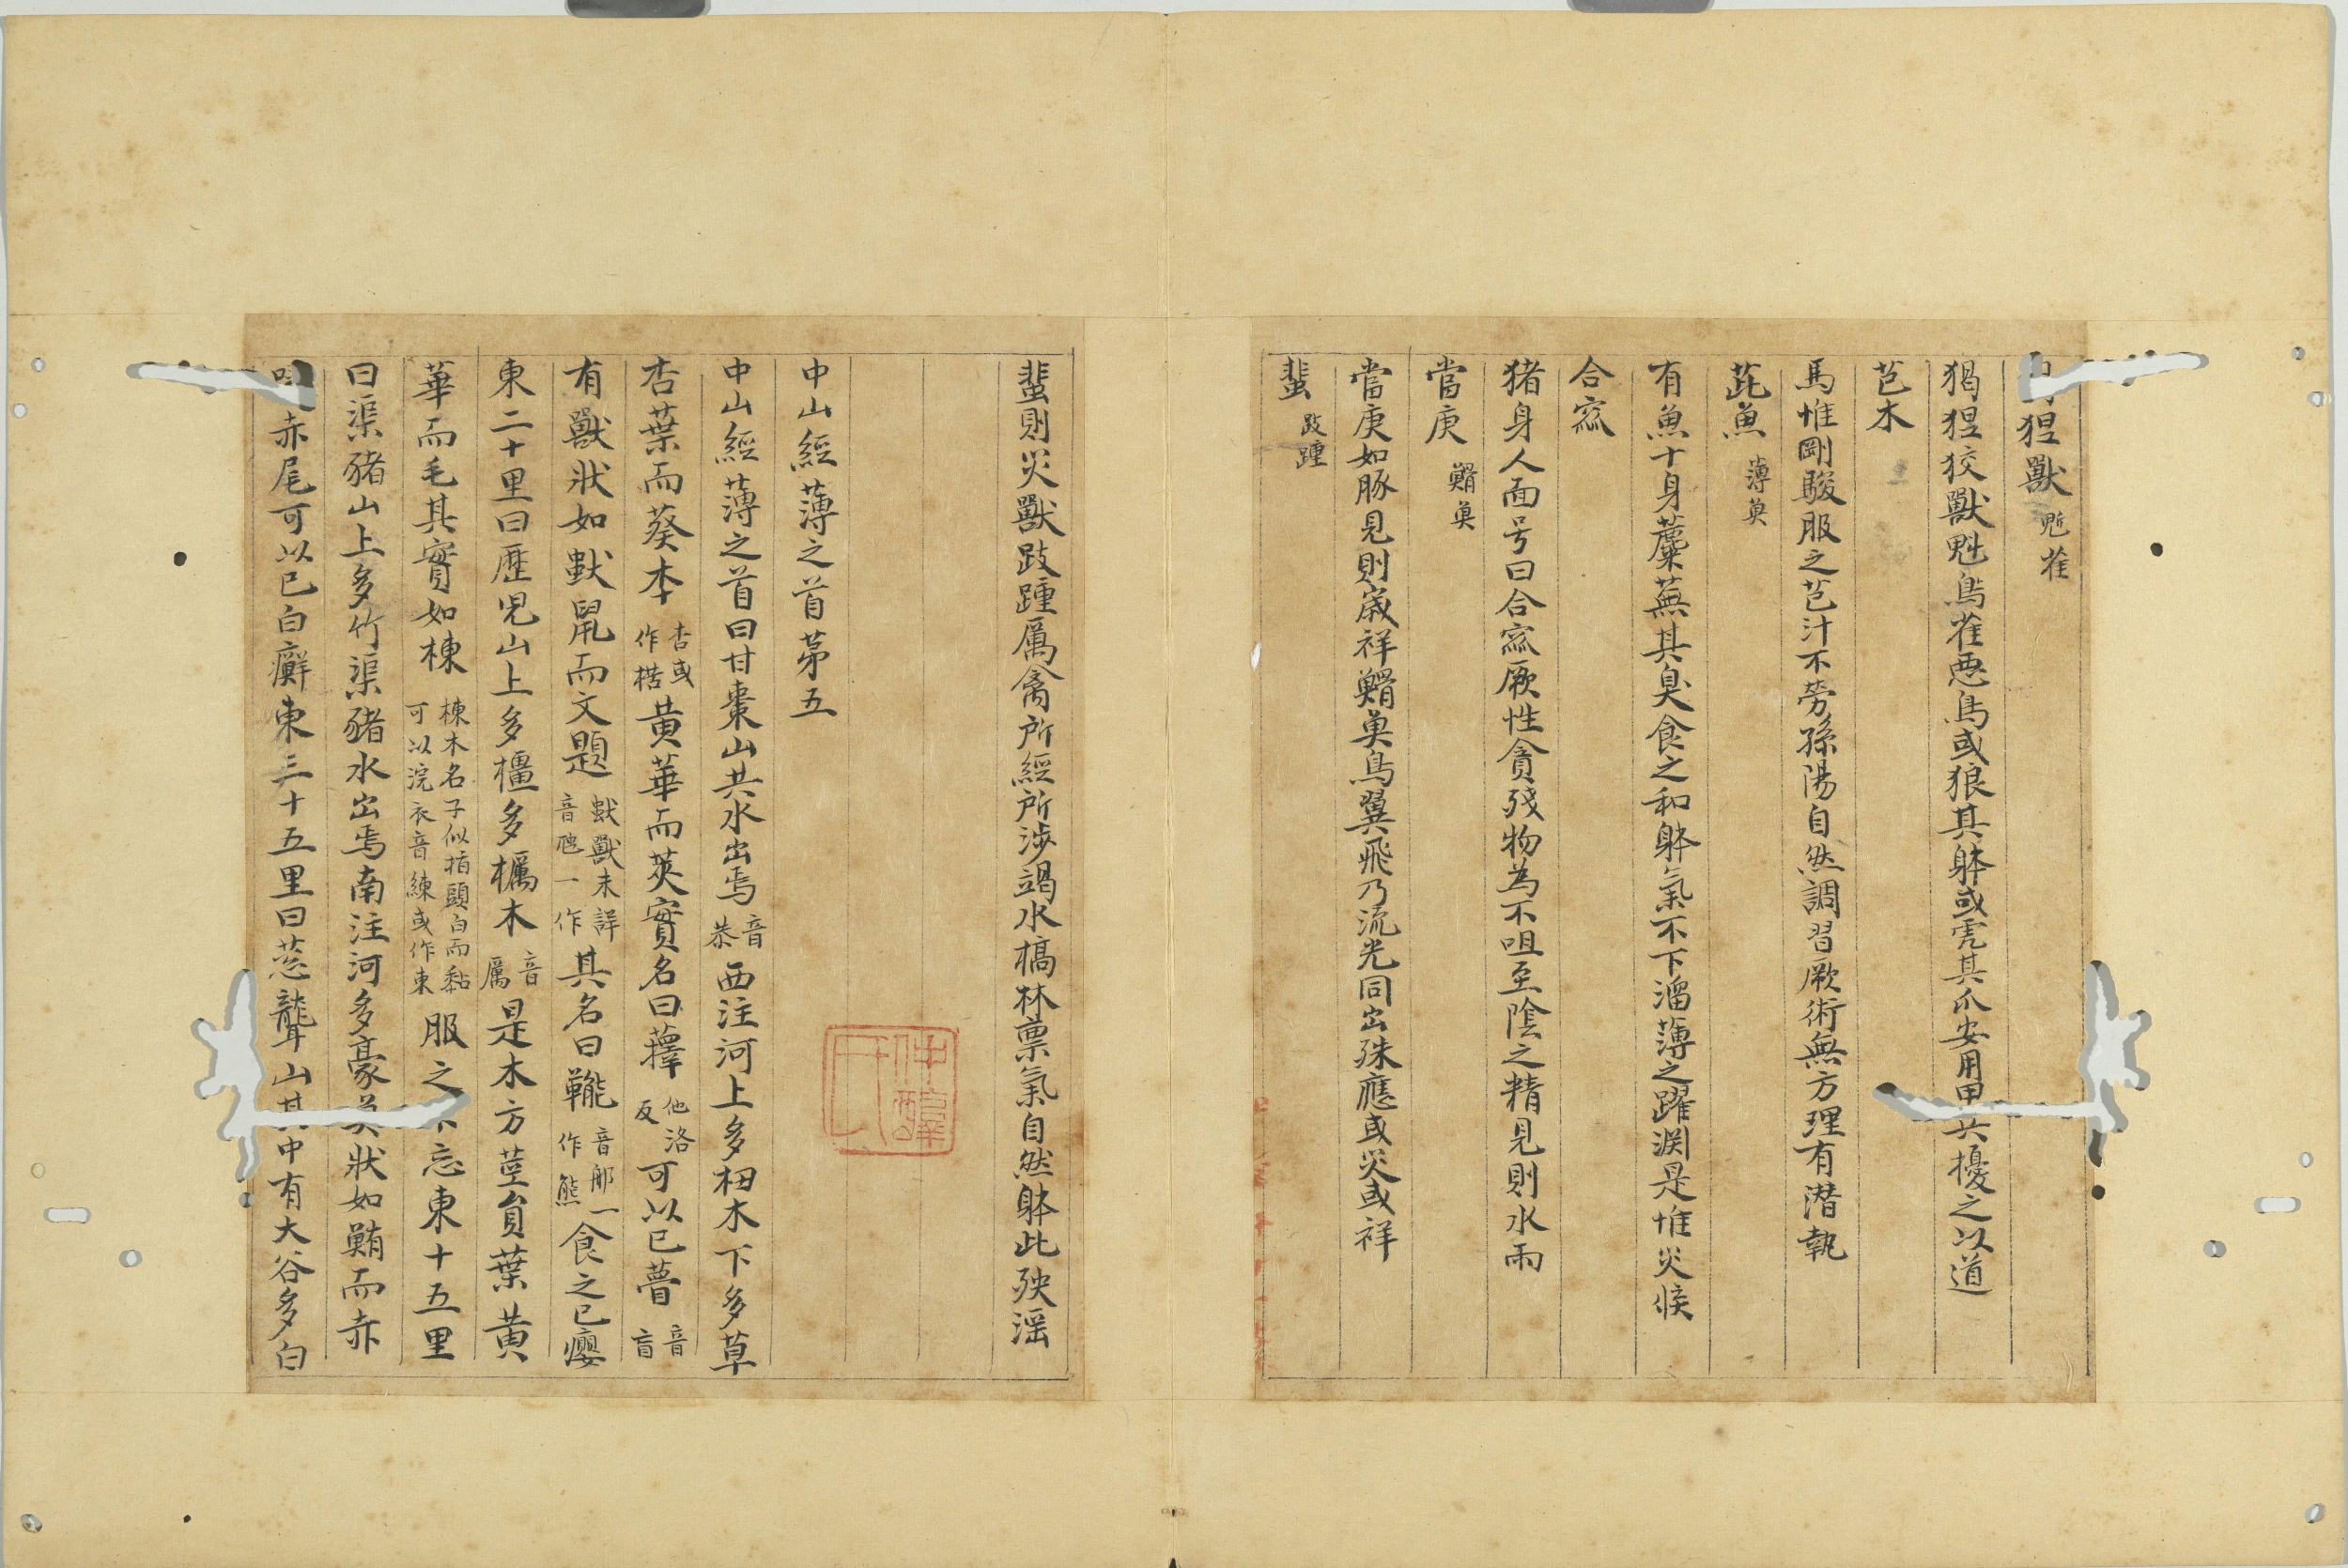 狙獸 鬿雀
獦狚狡獸鬿鳥雀惡鳥或狼其躰或虎其爪安用甲兵擾之以道
芑木
馬惟剛駿服之芑汁不勞孫陽自然調習厥術無方理有潛執
茈魚 薄奠
有魚十身蘪蕪其臭食之和躰氣不下溜薄之躍淵是惟災候
合窳
猪身人面号曰合窳厥性貪殘物為不咀至陰之精見則水雨
當庚 䱻奠
當庚如豚見則嵗祥䱻奠鳥翼飛乃流光同出殊應或災或祥
蜚 跂踵
蜚則災獸跂踵厲禽所經所涉竭水槁林禀氣自然躰此殃淫
中山經薄之首苐五
中山經薄之首曰甘棗山共水出焉音恭西注河上多杻木下多草
杏葉而葵本杏或作楛黄華而莢實名曰蘀他洛反可以已瞢音盲
有獸狀如䑕鼠而文題獸未詳音虺一作其名曰㔮音郍一作熊食之已癭
東二十里曰歷兒山上多橿多櫔木音厲是木方莖員葉黄
華而毛其實如楝楝木名子似指頭白而黏可以浣衣音練或作束服之不忘東十五里
曰渠豬山上多竹渠豬水出焉南注河多豪魚狀如鮪而赤
赤尾可以已白癬東三十五里曰葱聾山其中有大谷多白
仲醇氏